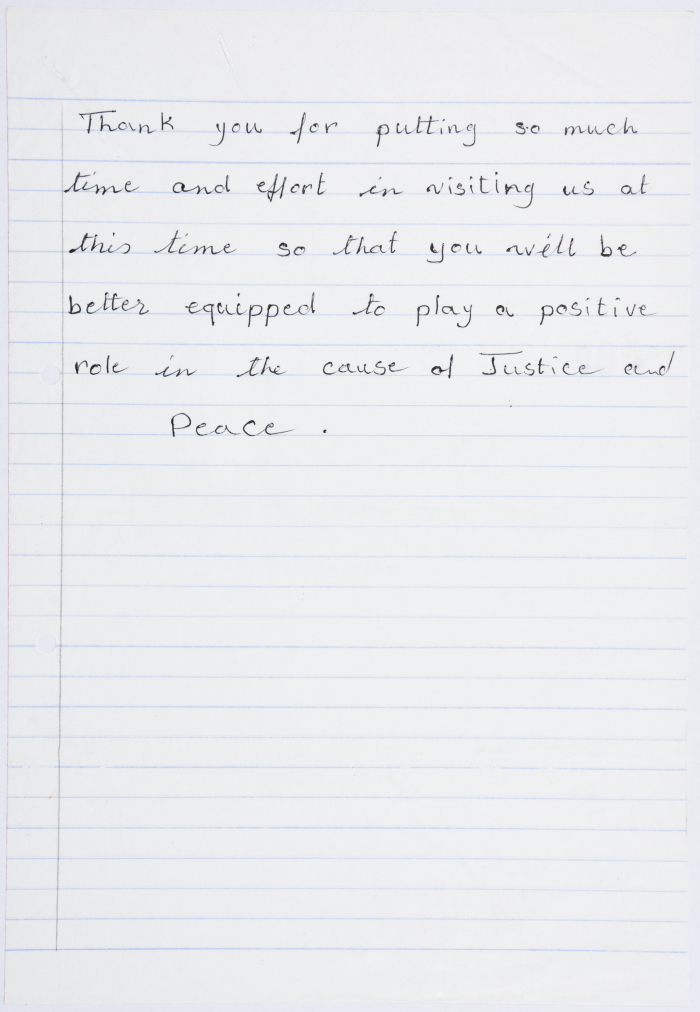 Thank you for putting so much
time and effort in visiting us at
this time so that you will be
better equipped to play a positive
role in the cause of Justice and
Peace .